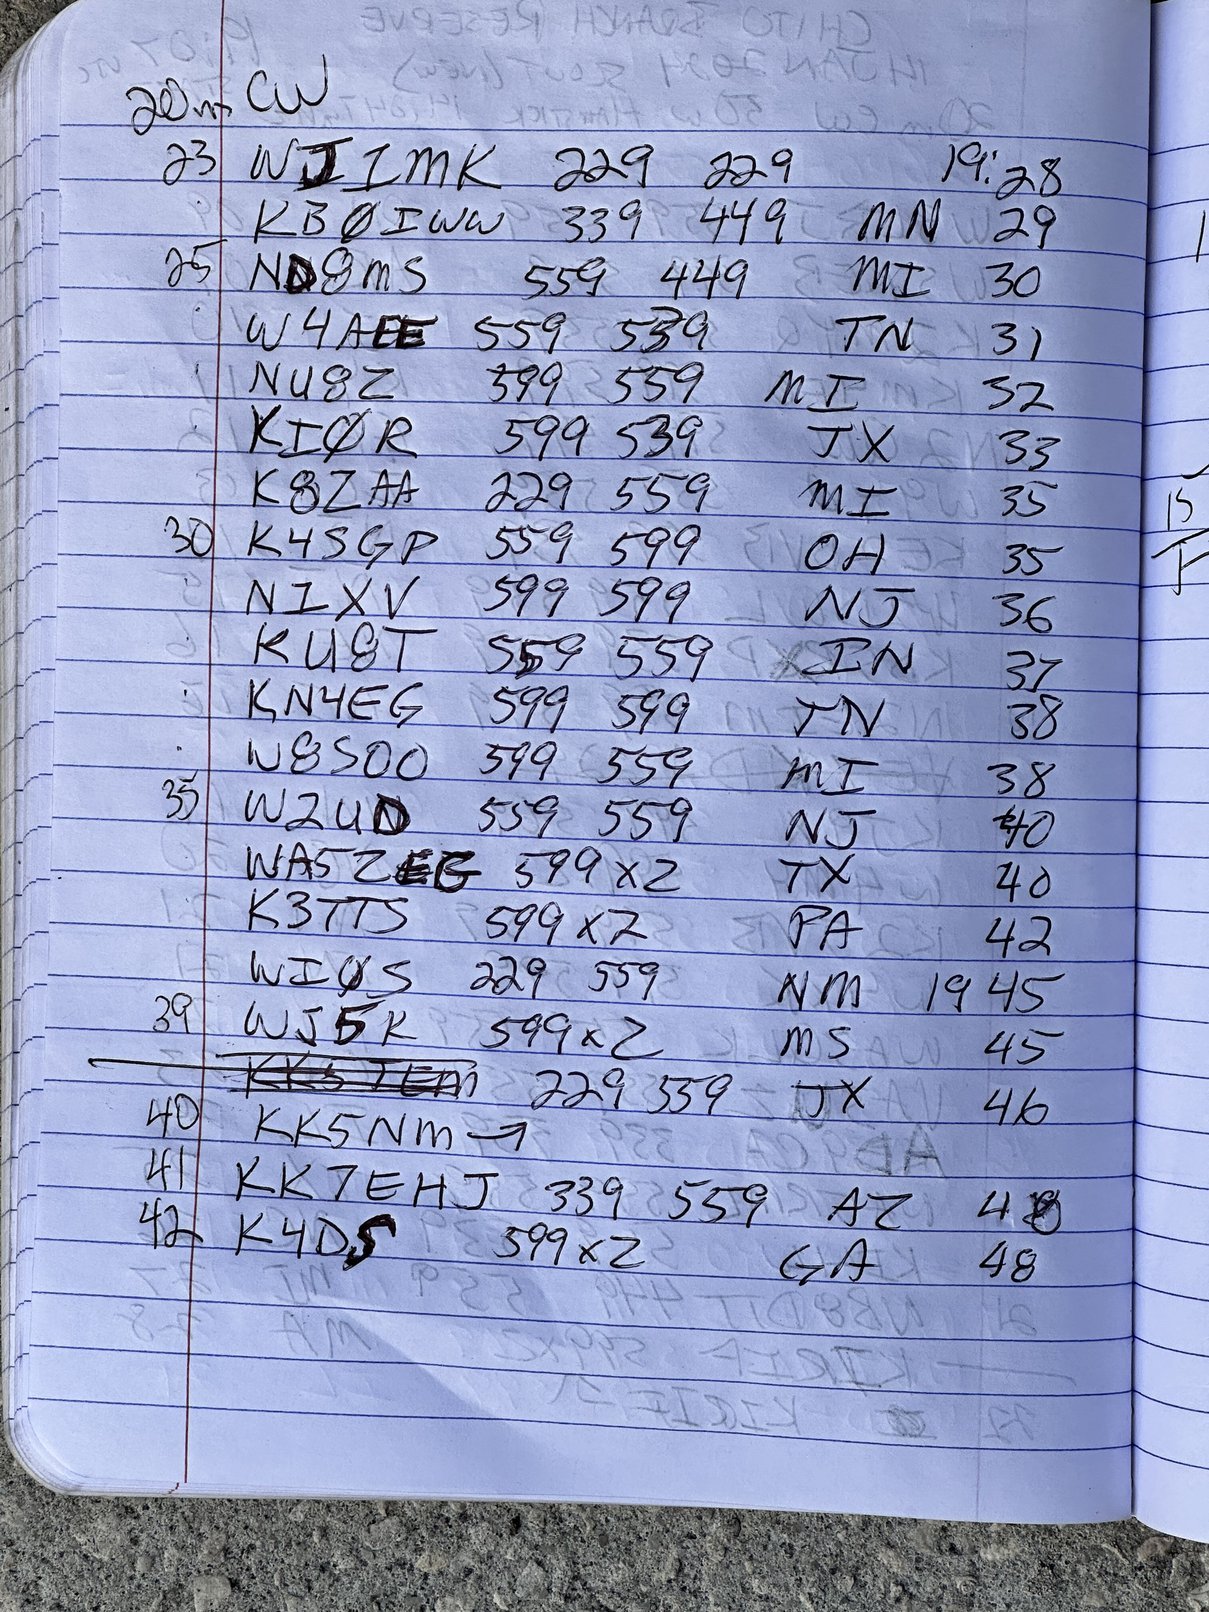 20m CW
23 WJ1MK 229 229 19:28
KBØIWW 339 449 MN 29
25 ND8MS 559 449 MI 30
W4AEE 559 539 TN 31
NU8Z 399 559 MI 32
KIØR 599 539 TX 33
K8ZAA 229 559 MI 35
30 K4SGP 559 599 OH 35
N1XV 599 599 NJ 36
KU8T 559 559 IN 37
KN4EG 599 599 TN 38
W8SOO 599 559 MI 38
35 W2UD 559 559 NJ 40
WA5ZEG 599x2 TX 40
K3TTS 599x2 PA 42
WIØS 229 559 NM 19 45
39 WJ5K 599x2 MS 45
229 559 TX 46
40 KK5NM →
41 KK7EHJ 339 559 AZ 48
42 K4DS 599x2 GA 48